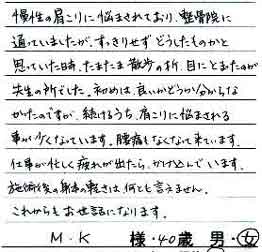 慢性の肩こりに悩まされており、整骨院に
通っていましたが、すっきりせずどうしたものかと
思っていた時、たまたま散歩の折、目にとまったのが
先生の所でした。初めは、良いかどうか分からな
かたのですが、続けるうち、肩こりに悩まされる
事が少くなっています。腰痛もなくなって来ています。
仕事が忙しく疲れが出たら、かけ込んでいます。
施術後の身体の軽さは何とも言えません。
これからもお世話になります。
M.K 様・40歳 男・女